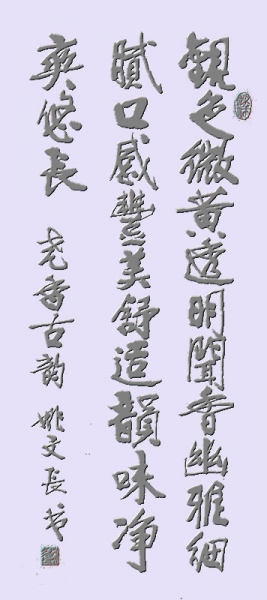 觀色微黃透明聞香幽雅細
膩口感豐美舒适韻味净
爽悠長 尧香古韵 姚文長书